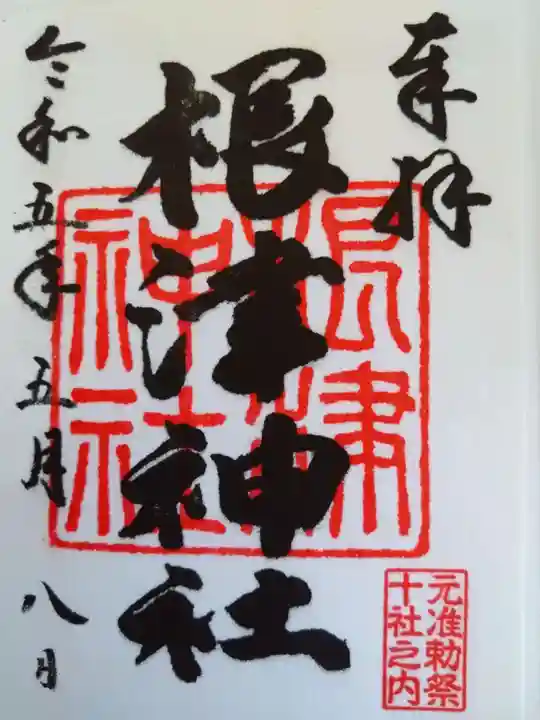 奉拝
根津神社
根津
神社
令和五年五月八日
元准勅祭
十社之内